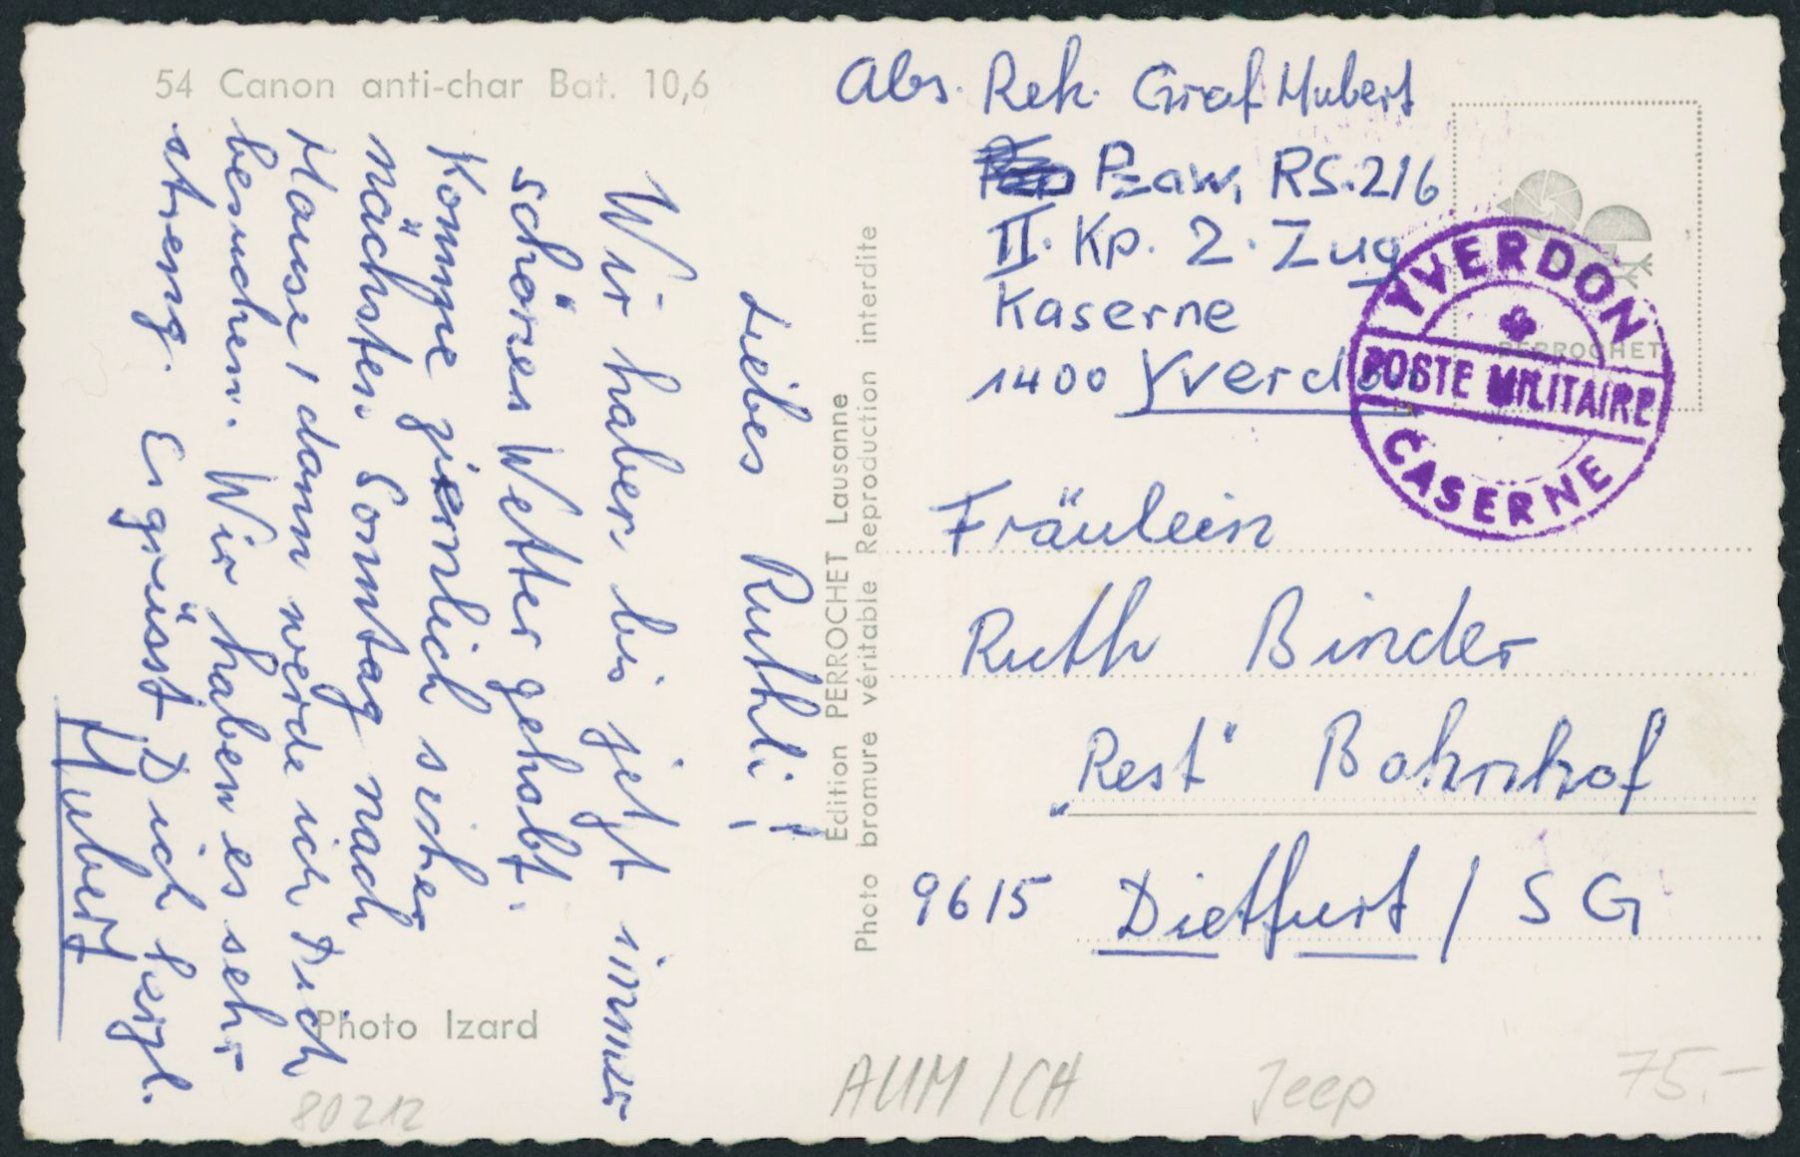 54 Canon anti-char Bat. 10,6
Liebes Ruthli!
Wir haben bis jetzt immer
schönes Wetter gehabt.
Komme ziemlich sicher
nächsten Sonntag nach
Hause, dann werde ich Dich
besuchen. Wir haben es sehr
streng. Es grüsst Dich herzl.
Hubert
Photo Izard
80212
Edition PERROCHET Lausanne
Photo bromure véritable Reproduction interdite
Abs. Rek. Graf Hubert
Pzaw, RS.216
II. Kp. 2. Zug
Kaserne
1400 Yverdon
PERROCHET
YVERDON
POSTE MILITAIRE
CASERNE
Fräulein
Ruth Binder
„Rest“ Bahnhof
9615 Dietfurt / SG
AUM/CH Jeep 75.-